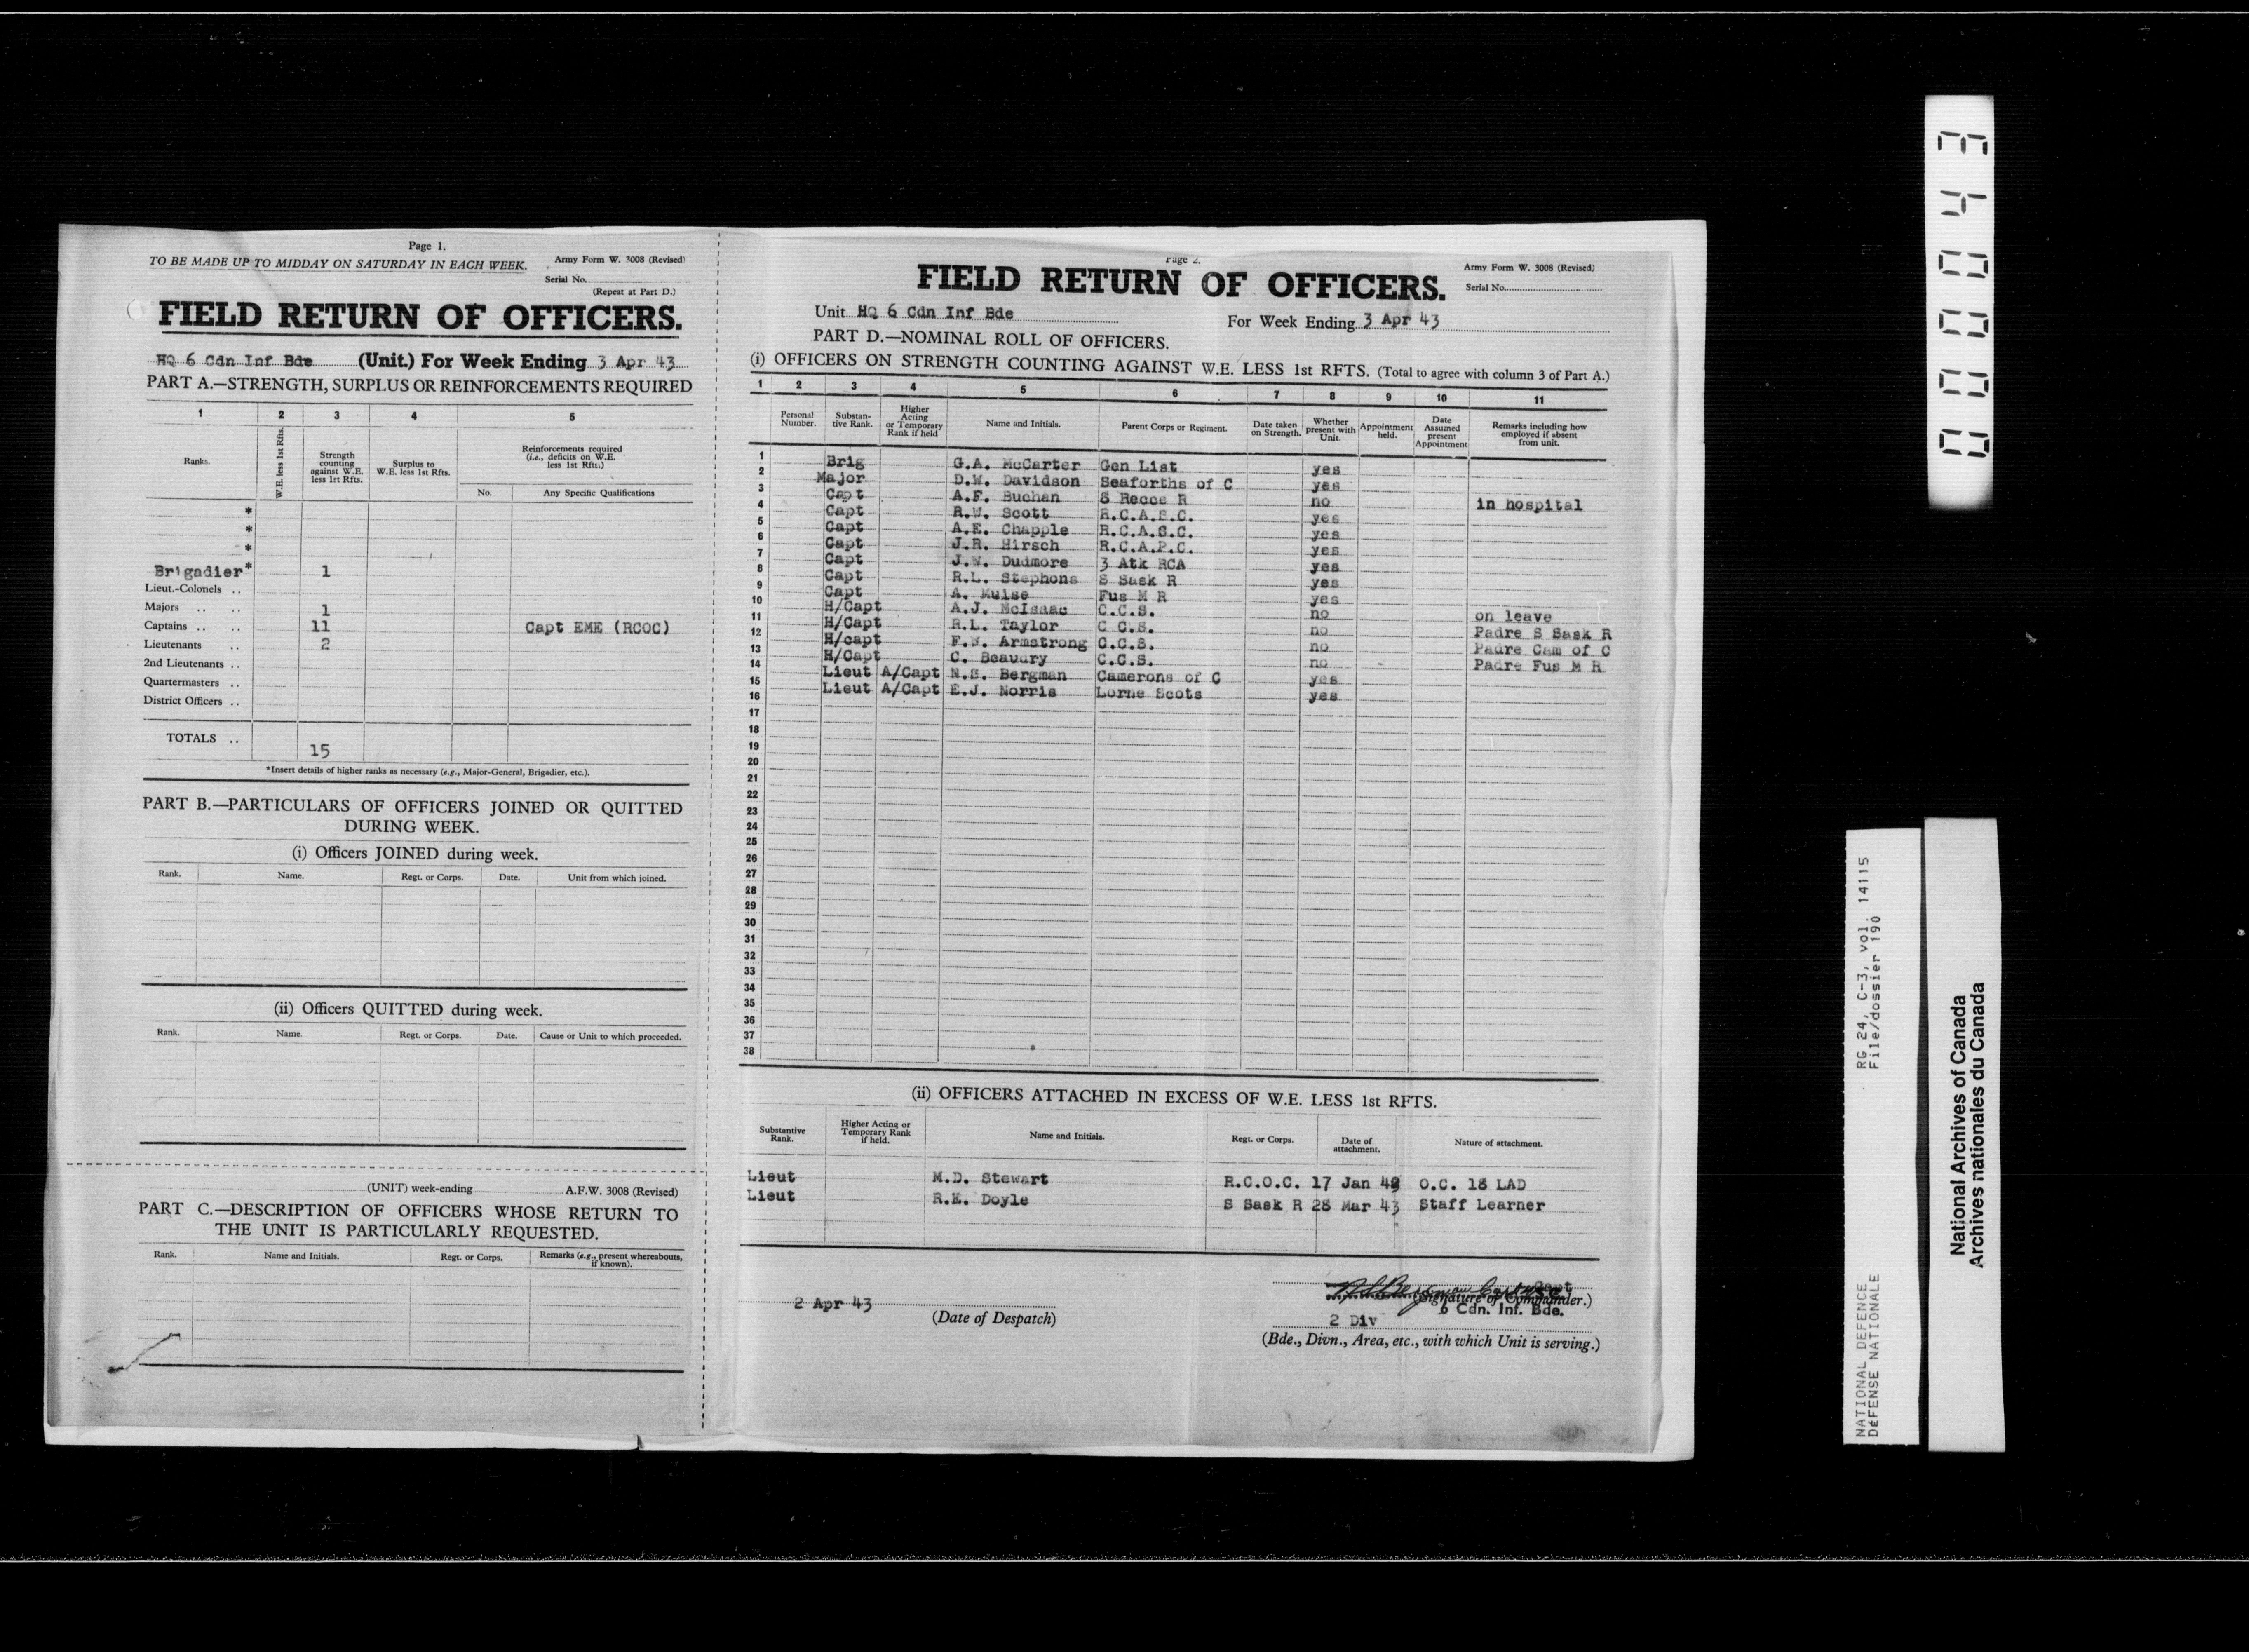 Page 1.
TO BE MADE UP TO MIDDAY ON SATURDAY IN EACH WEEK.
Army Form W. 3008 (Revised)
Serial No.
(Repeat at Part D.)
FIELD RETURN OF OFFICERS.
HQ 6 Cdn Inf Bde (Unit.) For Week Ending 3 Apr 43
PART A.—STRENGTH, SURPLUS OR REINFORCEMENTS REQUIRED
1 2 3 4 5
Ranks. W.E. less 1st Rfts. Strength counting against W.E. less 1st Rfts. Surplus to W.E. less 1st Rfts. Reinforcements required (i.e., deficits on W.E. less 1st Rfts.)
No. Any Specific Qualifications
*
*
*
Brigadier* 1
Lieut.-Colonels ..
Majors .. .. 1
Captains .. .. 11 Capt EME (RCOC)
Lieutenants .. 2
2nd Lieutenants ..
Quartermasters ..
District Officers ..
TOTALS .. 15
*Insert details of higher ranks as necessary (e.g., Major-General, Brigadier, etc.).
PART B.—PARTICULARS OF OFFICERS JOINED OR QUITTED
DURING WEEK.
(i) Officers JOINED during week.
Rank. Name. Regt. or Corps. Date. Unit from which joined.
(ii) Officers QUITTED during week.
Rank. Name. Regt. or Corps. Date. Cause or Unit to which proceeded.
(UNIT) week-ending A.F.W. 3008 (Revised)
PART C.—DESCRIPTION OF OFFICERS WHOSE RETURN TO
THE UNIT IS PARTICULARLY REQUESTED.
Rank. Name and Initials. Regt. or Corps. Remarks (e.g., present whereabouts, if known).
Page 2.
Army Form W. 3008 (Revised)
FIELD RETURN OF OFFICERS.
Serial No.
Unit HQ 6 Cdn Inf Bde For Week Ending 3 Apr 43
PART D.—NOMINAL ROLL OF OFFICERS.
(i) OFFICERS ON STRENGTH COUNTING AGAINST W.E. LESS 1st RFTS. (Total to agree with column 3 of Part A.)
1 2 3 4 5 6 7 8 9 10 11
Personal Number. Substantive Rank. Higher Acting or Temporary Rank if held Name and Initials. Parent Corps or Regiment. Date taken on Strength. Whether present with Unit. Appointment held. Date Assumed present Appointment Remarks including how employed if absent from unit.
1 Brig G.A. McCarter Gen List yes
2 Major D.W. Davidson Seaforths of C yes
3 Capt A.F. Buchan 8 Recce R no in hospital
4 Capt R.W. Scott R.C.A.S.C. yes
5 Capt A.E. Chapple R.C.A.S.C. yes
6 Capt J.R. Hirsch R.C.A.P.C. yes
7 Capt J.W. Dudmore 3 Atk RCA yes
8 Capt R.L. Stephens S Sask R yes
9 Capt A. Muise Fus M R yes
10 H/Capt A.J. McIsaac C.C.S. no on leave
11 H/Capt R.L. Taylor C C.S. no Padre S Sask R
12 H/capt F.W. Armstrong C.C.S. no Padre Cam of C
13 H/Capt C. Beaudry C.C.S. no Padre Fus M R
14 Lieut A/Capt N.S. Bergman Camerons of C yes
15 Lieut A/Capt E.J. Norris Lorne Scots yes
16
17
18
19
20
21
22
23
24
25
26
27
28
29
30
31
32
33
34
35
36
37
38
(ii) OFFICERS ATTACHED IN EXCESS OF W.E. LESS 1st RFTS.
Substantive Rank. Higher Acting or Temporary Rank if held. Name and Initials. Regt. or Corps. Date of attachment. Nature of attachment.
Lieut M.D. Stewart R.C.O.C. 17 Jan O.C. 18 LAD
Lieut R.E. Doyle S Sask R 28 Mar 43 Staff Learner
Capt
(Signature of Commander.)
6 Cdn. Inf. Bde.
2 Apr 43
(Date of Despatch)
2 Div
(Bde., Divn., Area, etc., with which Unit is serving.)
000043
RG 24, C-3, vol. 14115
File/dossier 190
NATIONAL DEFENCE
DÉFENSE NATIONALE
National Archives of Canada
Archives nationales du Canada